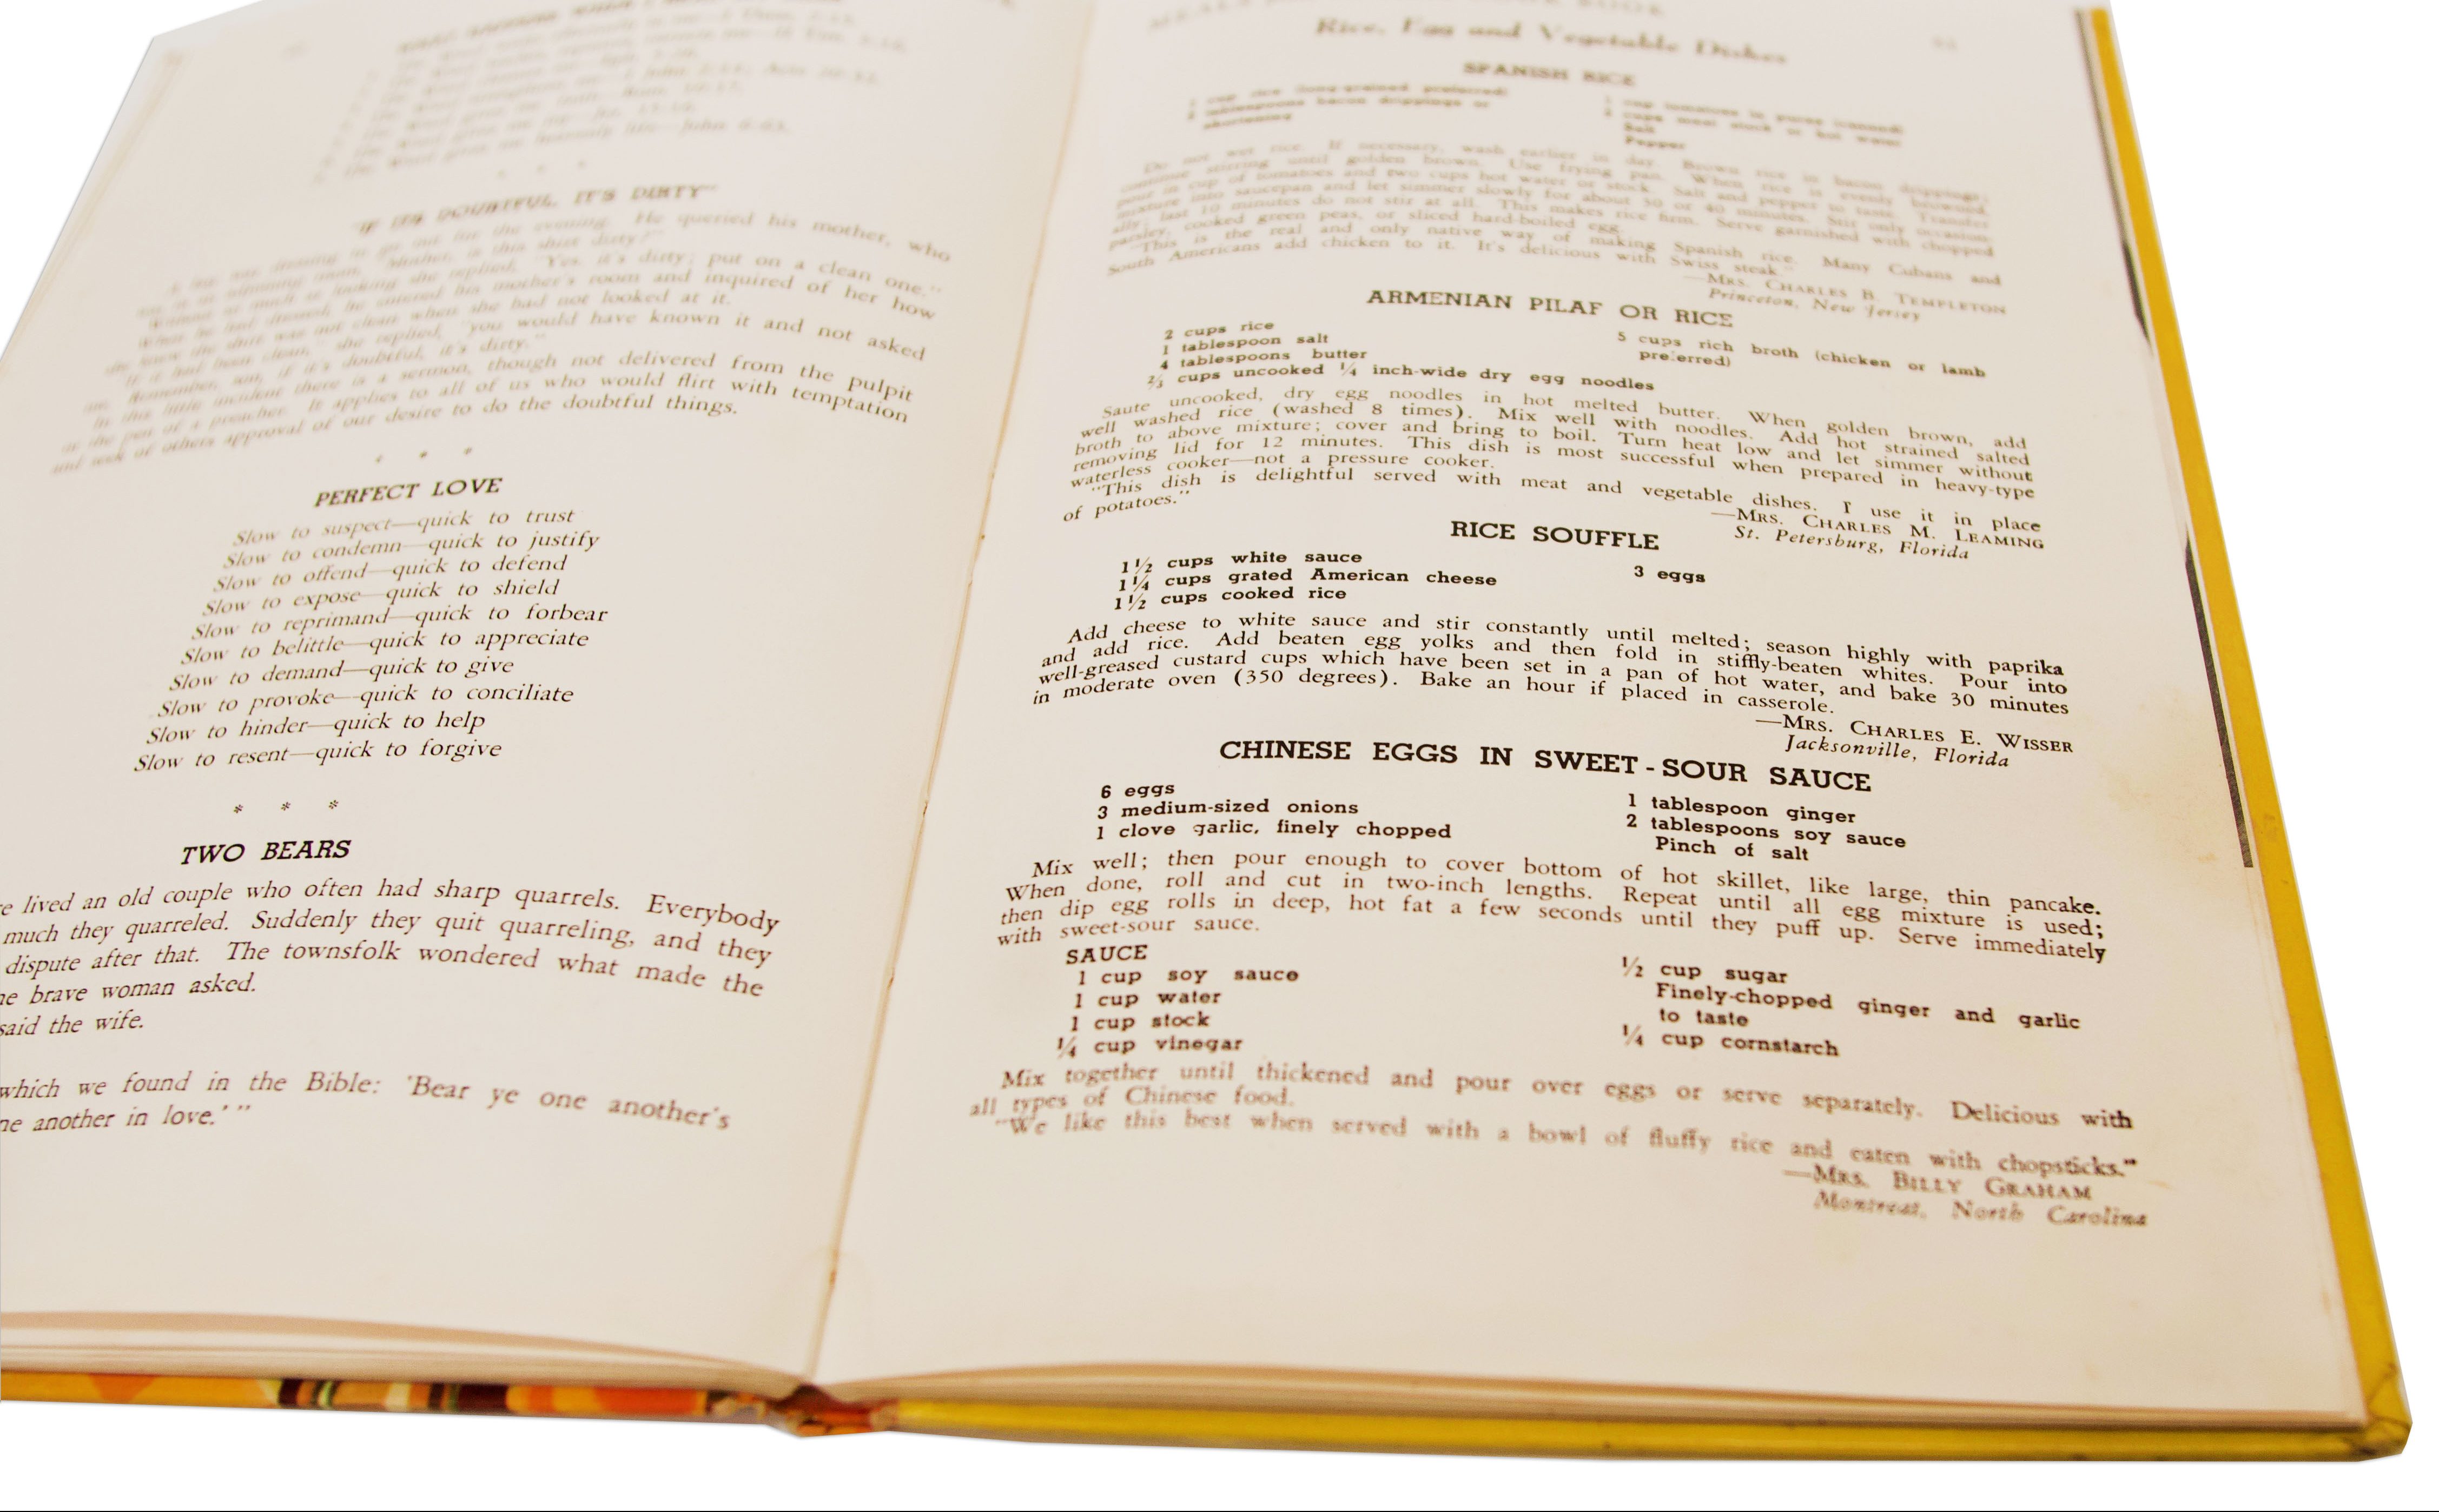 "IF IT'S DOUBTFUL, IT'S DIRTY"
the evening. He queried his mother, who
is this shirt dirty?"
she replied, "Yes, it's dirty; put on a clean one."
he entered his mother's room and inquired of her how
she knew the shirt was not clean when she had not looked at it.
"If it had been clean," she replied, "you would have known it and not asked
me. Remember, son, if it's doubtful, it's dirty."
In this little incident there is a sermon, though not delivered from the pulpit
or the pen of a preacher. It applies to all of us who would flirt with temptation
and seek of others approval of our desire to do the doubtful things.
* * *
PERFECT LOVE
Slow to suspect—quick to trust
Slow to condemn—quick to justify
Slow to offend—quick to defend
Slow to expose—quick to shield
Slow to reprimand—quick to forbear
Slow to belittle—quick to appreciate
Slow to demand—quick to give
Slow to provoke—quick to conciliate
Slow to hinder—quick to help
Slow to resent—quick to forgive
* * *
TWO BEARS
lived an old couple who often had sharp quarrels. Everybody
much they quarreled. Suddenly they quit quarreling, and they
dispute after that. The townsfolk wondered what made the
brave woman asked.
said the wife.
which we found in the Bible: 'Bear ye one another's
another in love.' "
Rice, Egg and Vegetable Dishes
SPANISH RICE
1 cup rice (long-grained preferred)
tablespoons bacon drippings or
shortening
1 cup tomatoes in puree (canned)
cups meat stock or hot water
Salt
Pepper
Do not wet rice. If necessary, wash earlier in day. Brown rice in bacon drippings;
continue stirring until golden brown. Use frying pan. When rice is evenly browned,
pour in cup of tomatoes and two cups hot water or stock. Salt and pepper to taste. Transfer
mixture into saucepan and let simmer slowly for about 30 or 40 minutes. Stir only occasion-
ally; last 10 minutes do not stir at all. This makes rice firm. Serve garnished with chopped
parsley, cooked green peas, or sliced hard-boiled egg.
"This is the real and only native way of making Spanish rice. Many Cubans and
South Americans add chicken to it. It's delicious with Swiss steak."
—MRS. CHARLES B. TEMPLETON
Princeton, New Jersey
ARMENIAN PILAF OR RICE
2 cups rice
1 tablespoon salt
4 tablespoons butter
⅔ cups uncooked ¼ inch-wide dry egg noodles
5 cups rich broth (chicken or lamb
preferred)
Saute uncooked, dry egg noodles in hot melted butter. When golden brown, add
well washed rice (washed 8 times). Mix well with noodles. Add hot strained salted
broth to above mixture; cover and bring to boil. Turn heat low and let simmer without
removing lid for 12 minutes. This dish is most successful when prepared in heavy-type
waterless cooker—not a pressure cooker.
"This dish is delightful served with meat and vegetable dishes. I use it in place
of potatoes."
—MRS. CHARLES M. LEAMING
St. Petersburg, Florida
RICE SOUFFLE
1½ cups white sauce
1¼ cups grated American cheese
1½ cups cooked rice
3 eggs
Add cheese to white sauce and stir constantly until melted; season highly with paprika
and add rice. Add beaten egg yolks and then fold in stiffly-beaten whites. Pour into
well-greased custard cups which have been set in a pan of hot water, and bake 30 minutes
in moderate oven (350 degrees). Bake an hour if placed in casserole.
—MRS. CHARLES E. WISSER
Jacksonville, Florida
CHINESE EGGS IN SWEET-SOUR SAUCE
6 eggs
3 medium-sized onions
1 clove garlic, finely chopped
1 tablespoon ginger
2 tablespoons soy sauce
Pinch of salt
Mix well; then pour enough to cover bottom of hot skillet, like large, thin pancake.
When done, roll and cut in two-inch lengths. Repeat until all egg mixture is used;
then dip egg rolls in deep, hot fat a few seconds until they puff up. Serve immediately
with sweet-sour sauce.
SAUCE
1 cup soy sauce
1 cup water
1 cup stock
¼ cup vinegar
½ cup sugar
Finely-chopped ginger and garlic
to taste
¼ cup cornstarch
Mix together until thickened and pour over eggs or serve separately. Delicious with
all types of Chinese food.
"We like this best when served with a bowl of fluffy rice and eaten with chopsticks."
—MRS. BILLY GRAHAM
Montreat, North Carolina